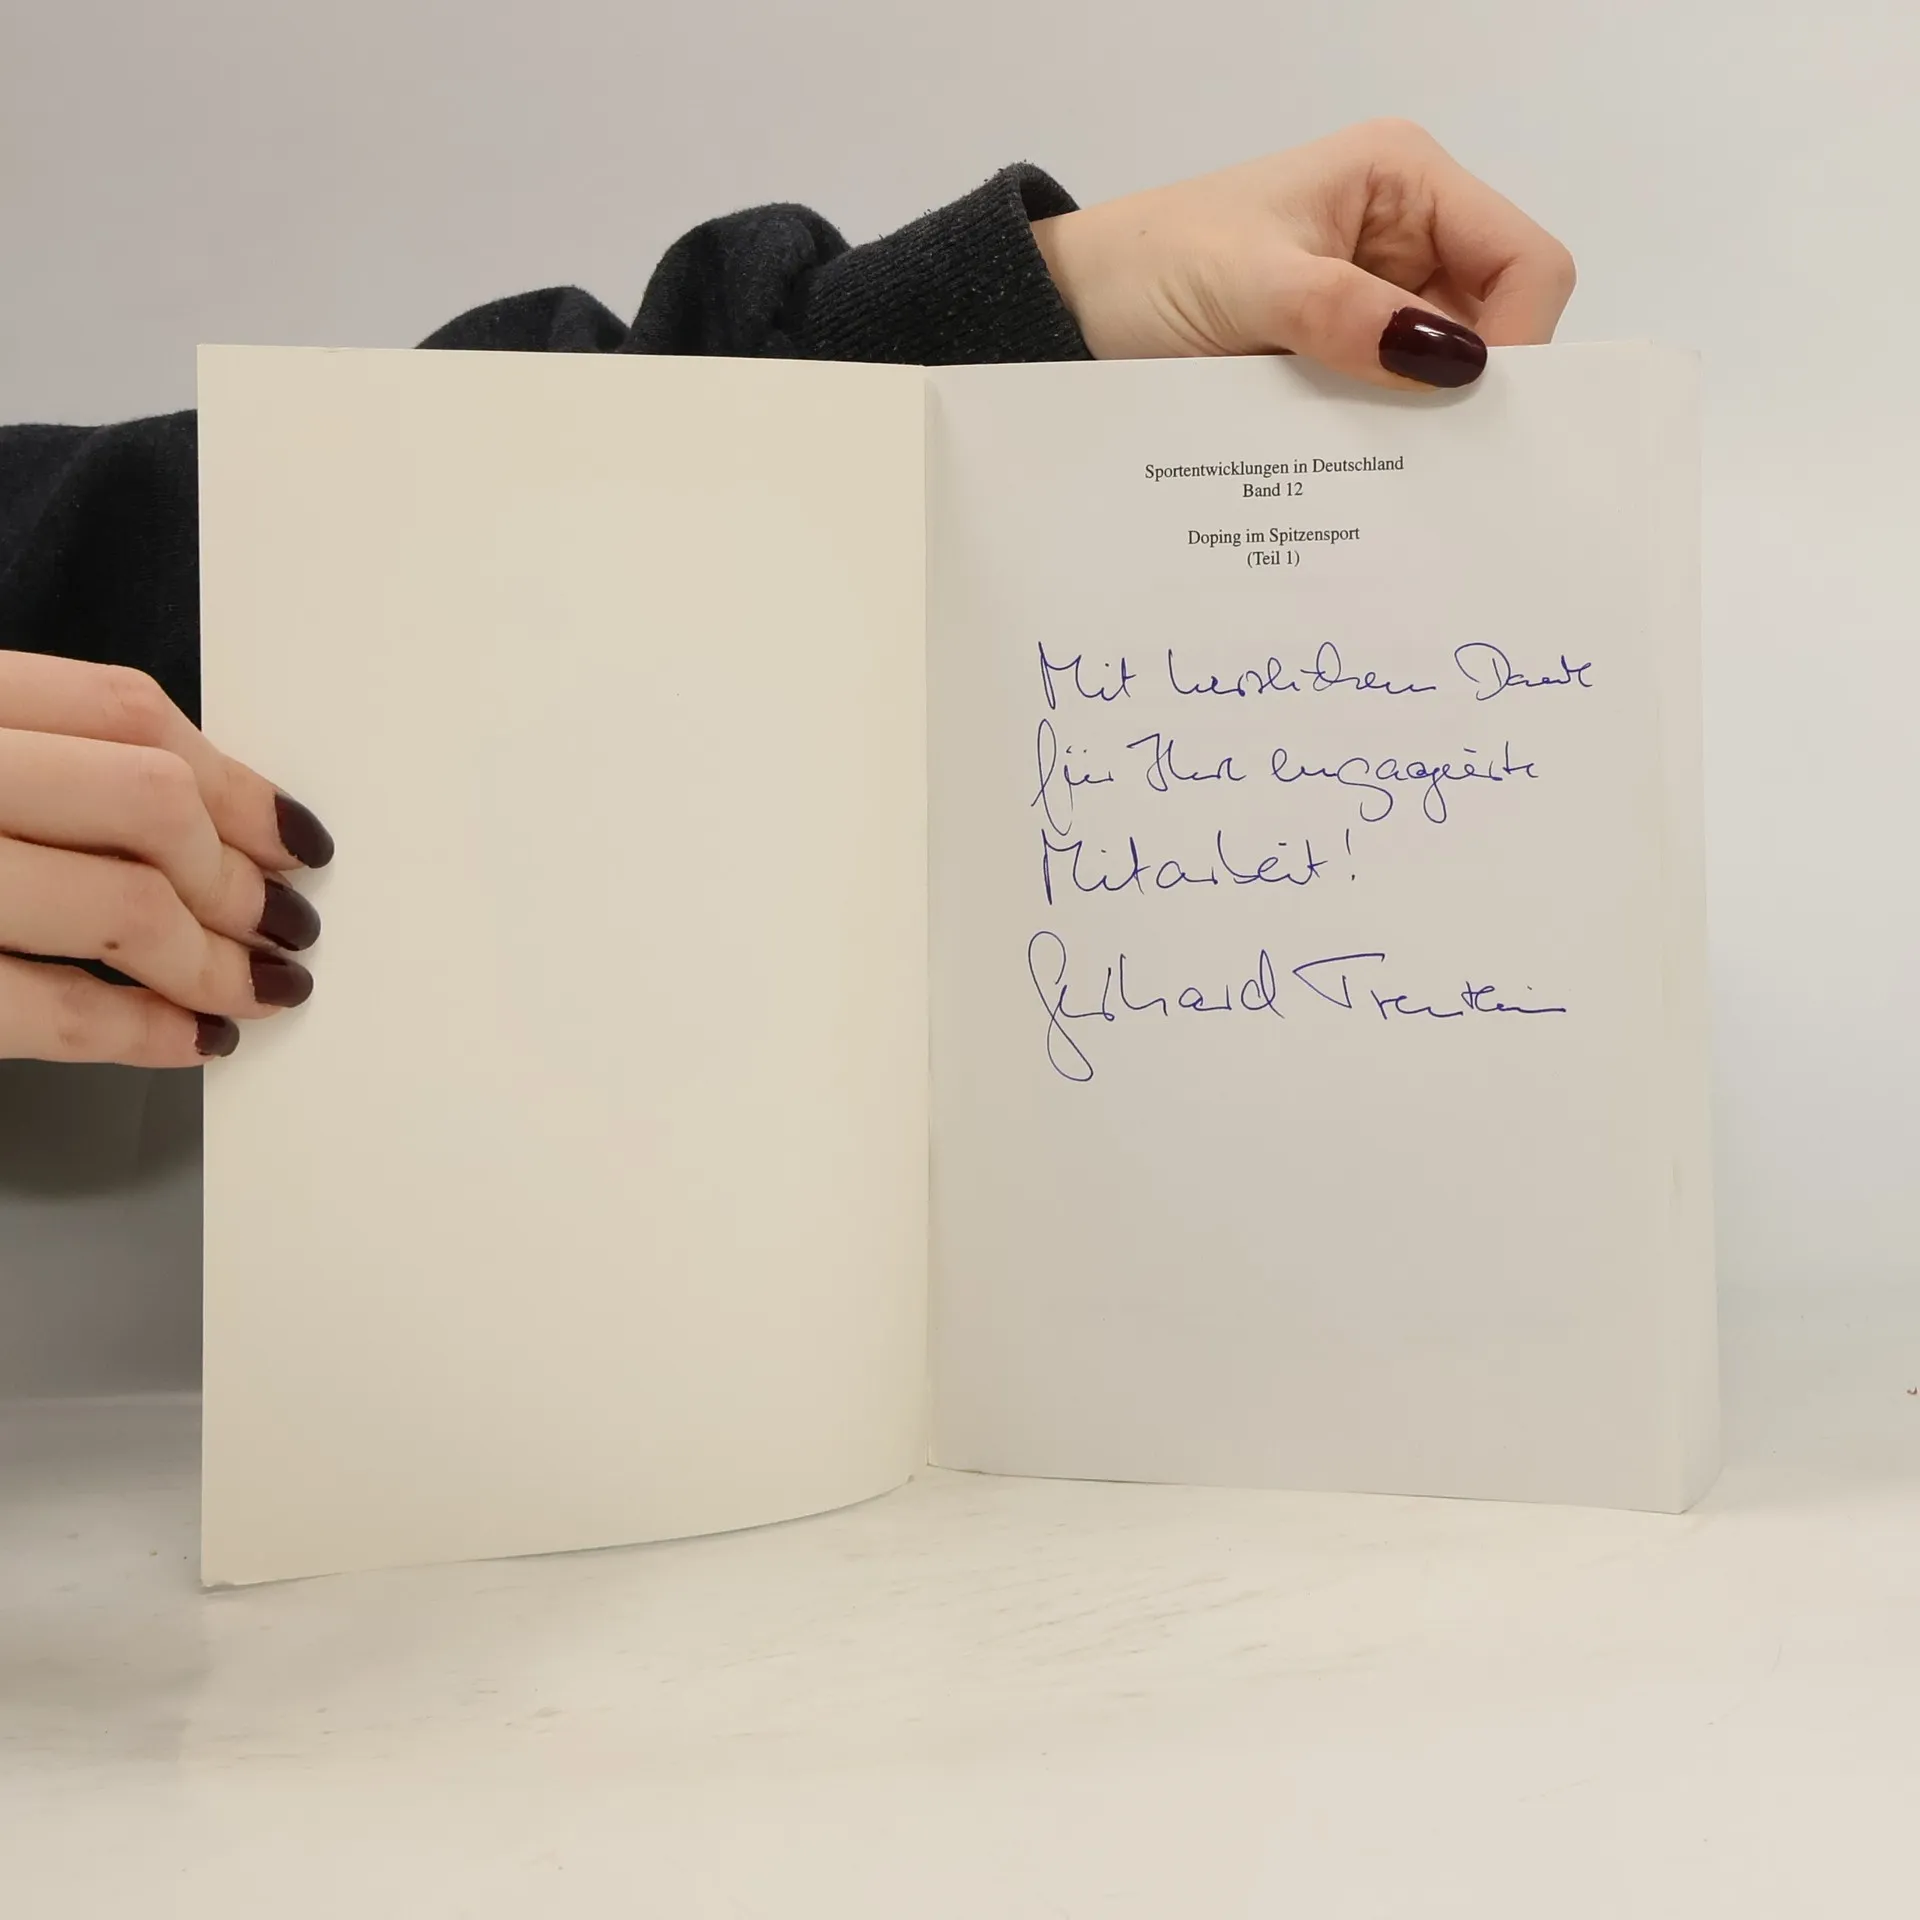 Sportentwicklungen in Deutschland
Band 12
Doping im Spitzensport
(Teil 1)
Mit herzlichem Dank
für Ihre engagierte
Mitarbeit!
Gerhard Treutlein